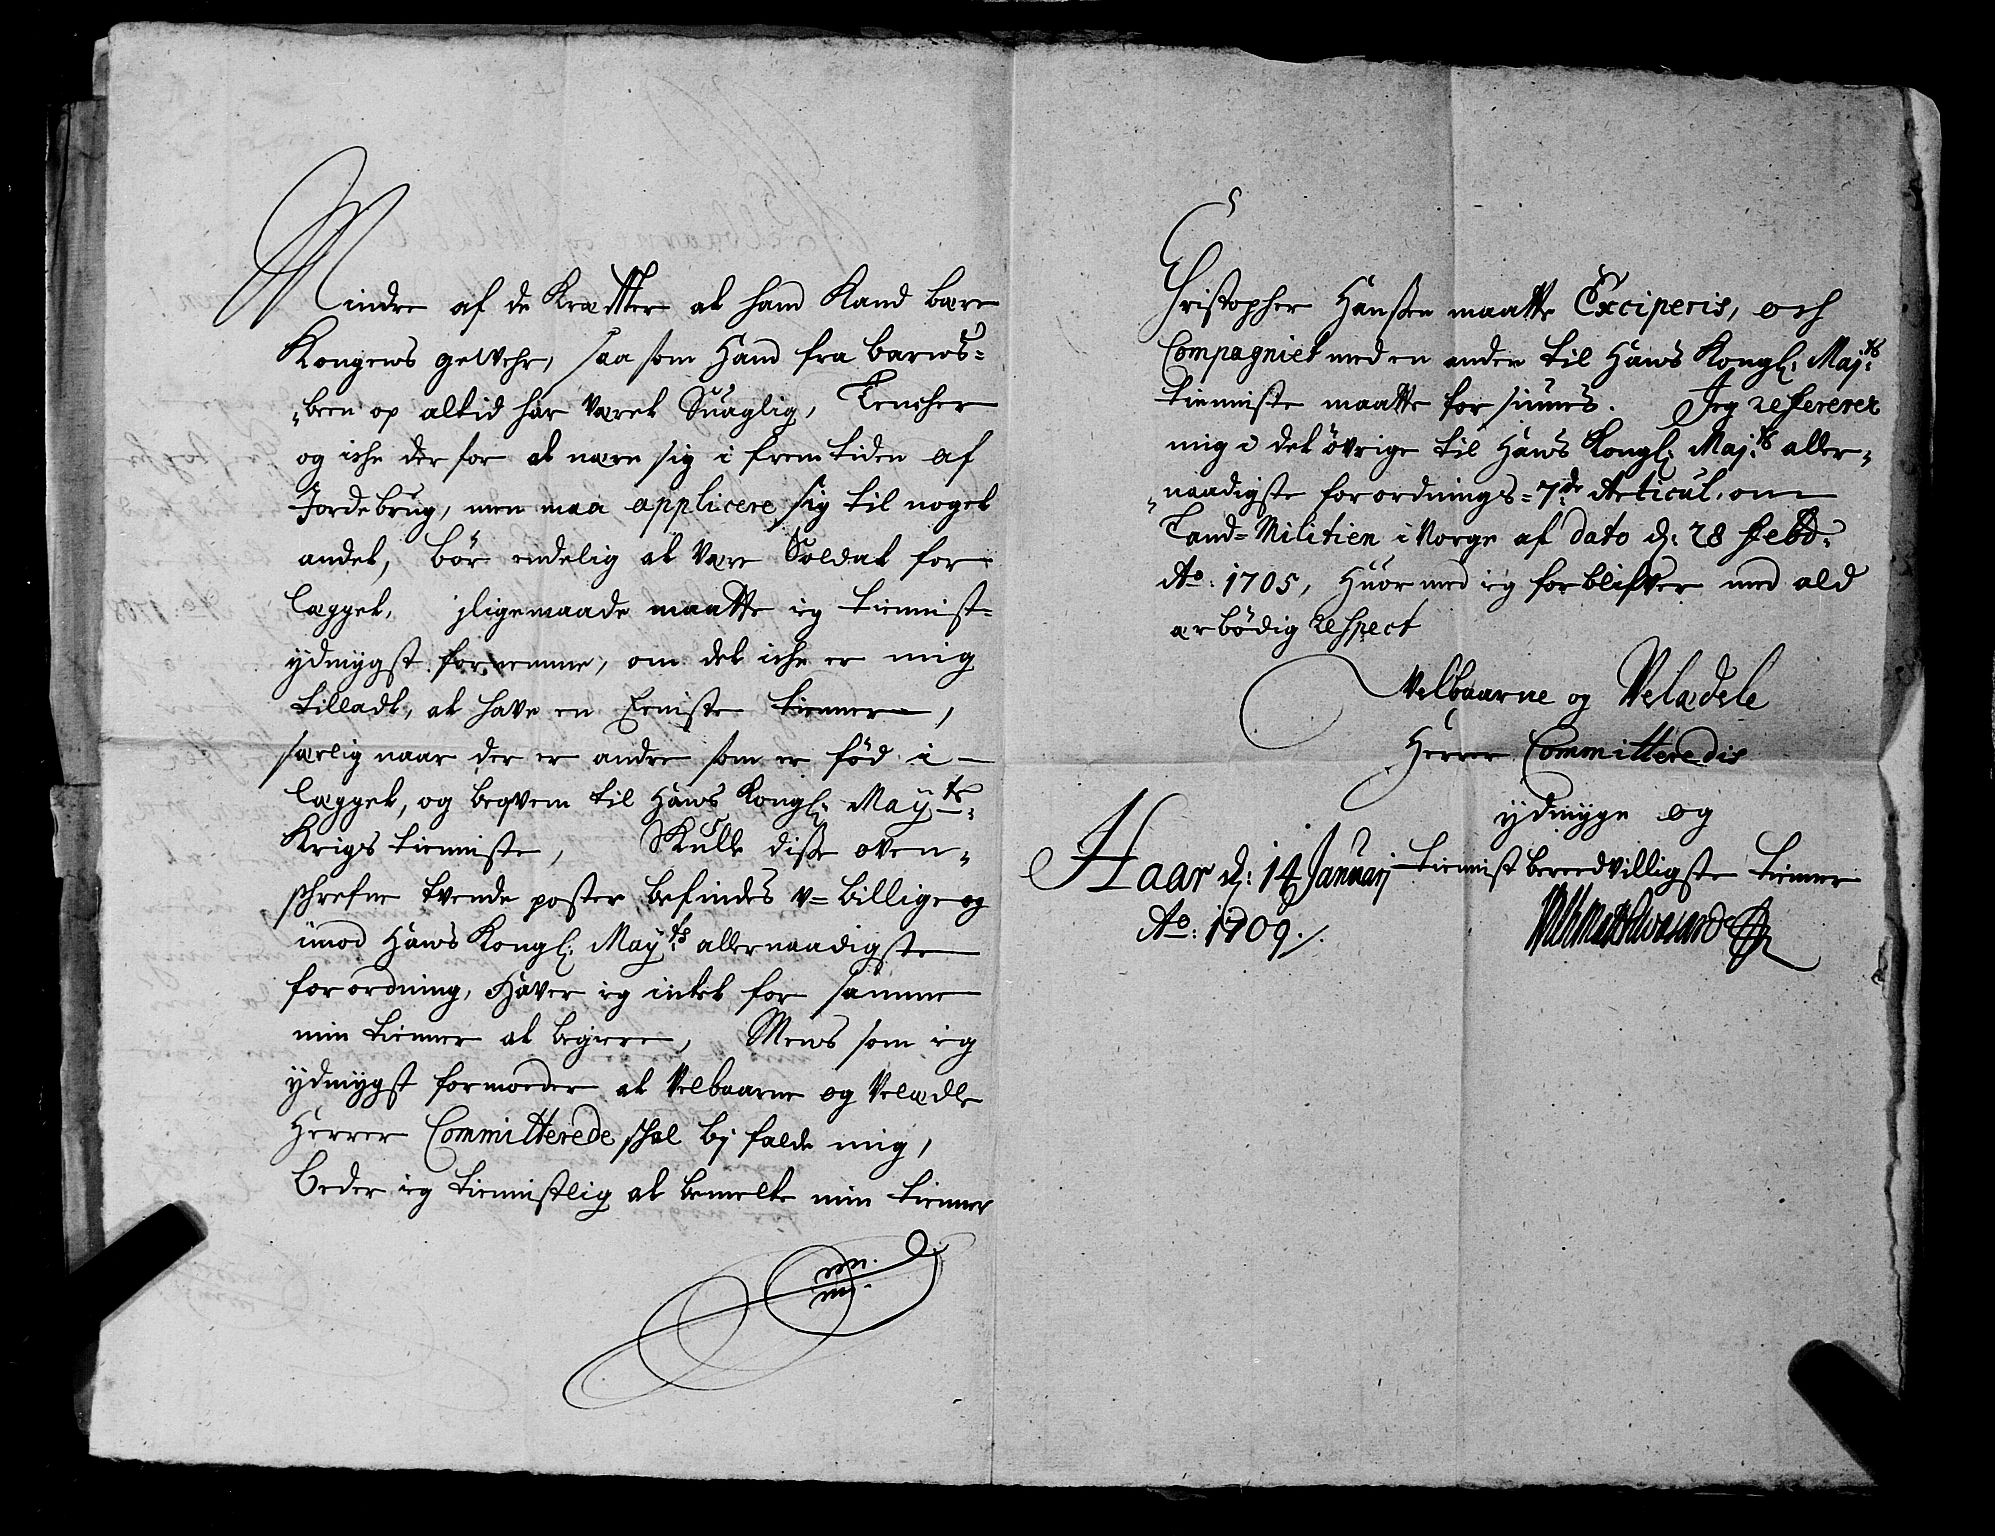 Mindre af de Kræffter at hand Kand bære
Kongens gewehr, saa som Hand fra barns-
been op altid har været Suaglig, Tencher
og iche der for at nære sig i frem tiden af
Jordebrug, men maa applicere sig til noget
andet, bör endelig at være Soldat for
lægget, jligemaade maatte ieg tiennist-
ydmygst fornemme, om det iche er mig
tilladt, at have en Eeniste tienner,
særlig naar der er andre som er föd i
lægget, og beqvem til Hans Kongl: May:ts
Krigs tienniste, Skulle disse oven-
schrefne tvende poster befindes v-billige og
imod Hans Kongl: May:ts allernaadigste
forordning, Haver ieg intet for samme
min tienner at begiere, Mens som ieg
ydmygst formoeder at Velbaarne og Velædle
Herrer Committerede schal bj falde mig,
Beder ieg tiennistlig at bemelte min tienner
Christopher Hanssen maatte Exciperis, och
Compagniet med en anden til Hans Kongl: Maj:ts
tienniste maatte forsiunes. Jeg refererer
mig i det övrige til Hans Kongl: Maj:ts aller-
naadigste forordnings 7:de Articul, om
Land-Militien i Norge af dato d: 28 Febr:
Ao: 1705, Huormed ieg forblifver med ald
ærbödig respect
Velbaarne og Velædele
Herrer Committeredis
ydmyge og
tiennist bereedvilligste tienner
Haar d: 14 Januarj
Ao: 1709./.